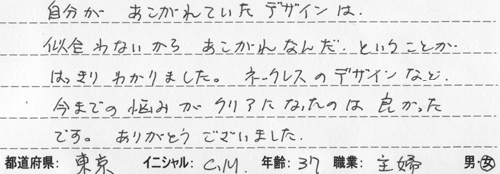 自分が あこがれていた デザインは、
似合わないから あこがれなんだ、ということが
はっきり わかりました。ネックレスのデザインなど、
今までの悩みが クリアになったのは 良かった
です。ありがとうございました。
都道府県： 東京 イニシャル： C.M. 年齢： 37 職業： 主婦 男・女